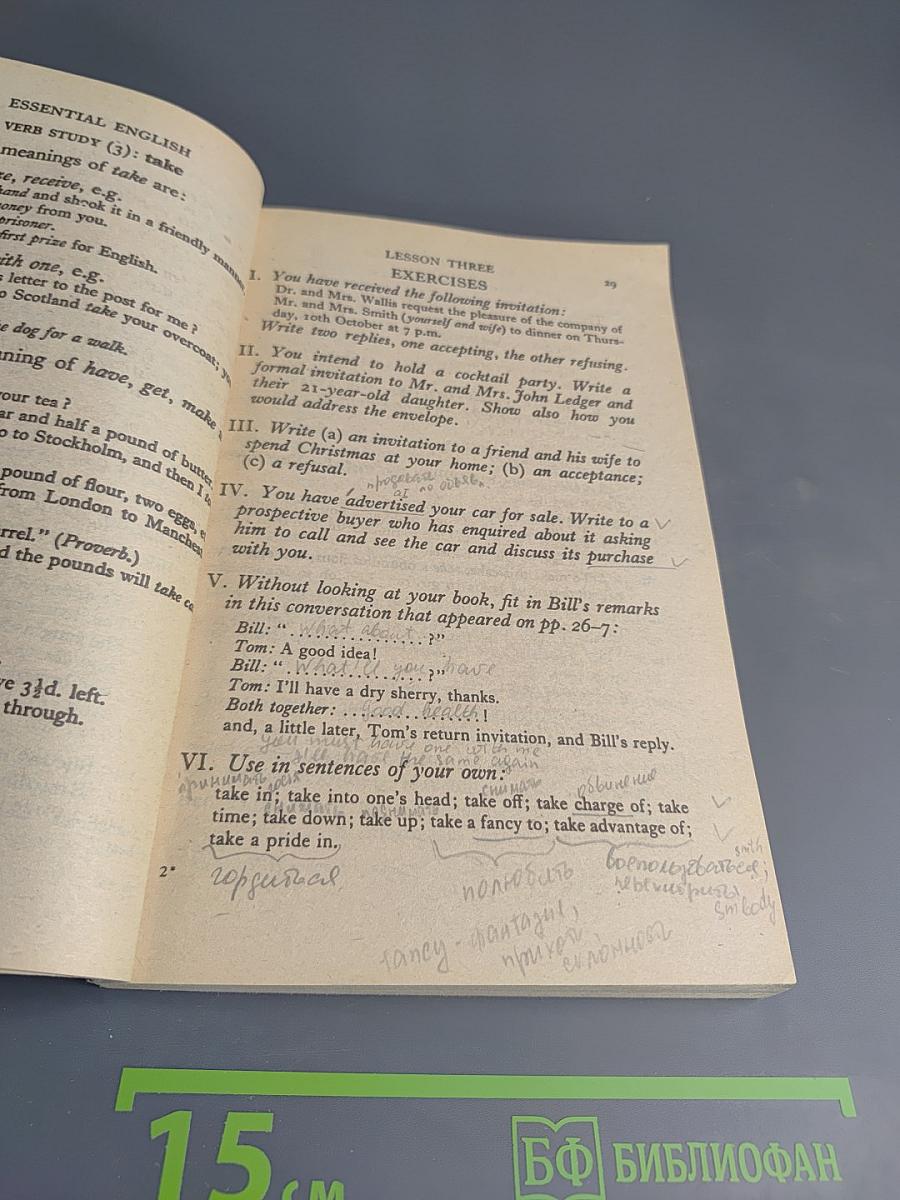 ESSENTIAL ENGLISH
VERB STUDY (3): take
meanings of take are:
receive, e.g.
hand and shook it in a friendly
money from you.
prisoner.
first prize for English.
with one, e.g.
letter to the post for me?
to Scotland take your overcoat;
dog for a walk.
of have, get, make
your tea?
and half a pound of butter,
to Stockholm, and then I
pound of flour, two eggs,
from London to
(Proverb.)
the pounds will take
3½d. left.
through.
LESSON THREE
29
EXERCISES
I. You have received the following invitation:
Dr. and Mrs. Wallis request the pleasure of the company of
Mr. and Mrs. Smith (yourself and wife) to dinner on Thurs-
day, 10th October at 7 p.m.
Write two replies, one accepting, the other refusing.
II. You intend to hold a cocktail party. Write a
formal invitation to Mr. and Mrs. John Ledger and
their 21-year-old daughter. Show also how you
would address the envelope.
III. Write (a) an invitation to a friend and his wife to
spend Christmas at your home; (b) an acceptance;
(c) a refusal.
IV. You have advertised your car for sale. Write to a
prospective buyer who has enquired about it asking
him to call and see the car and discuss its purchase
with you.
V. Without looking at your book, fit in Bill's remarks
in this conversation that appeared on pp. 26–7:
Bill: "What about ?"
Tom: A good idea!
Bill: "What'll you have ?"
Tom: I'll have a dry sherry, thanks.
Both together: good health!
and, a little later, Tom's return invitation, and Bill's reply.
you must have one with me
have the same again
VI. Use in sentences of your own:
принимать
снимать
take in; take into one's head; take off; take charge of; take
time; take down; take up; take a fancy to; take advantage of;
take a pride in.
2*
гордиться
полюбить
smth
smbody
fancy - фантазия,